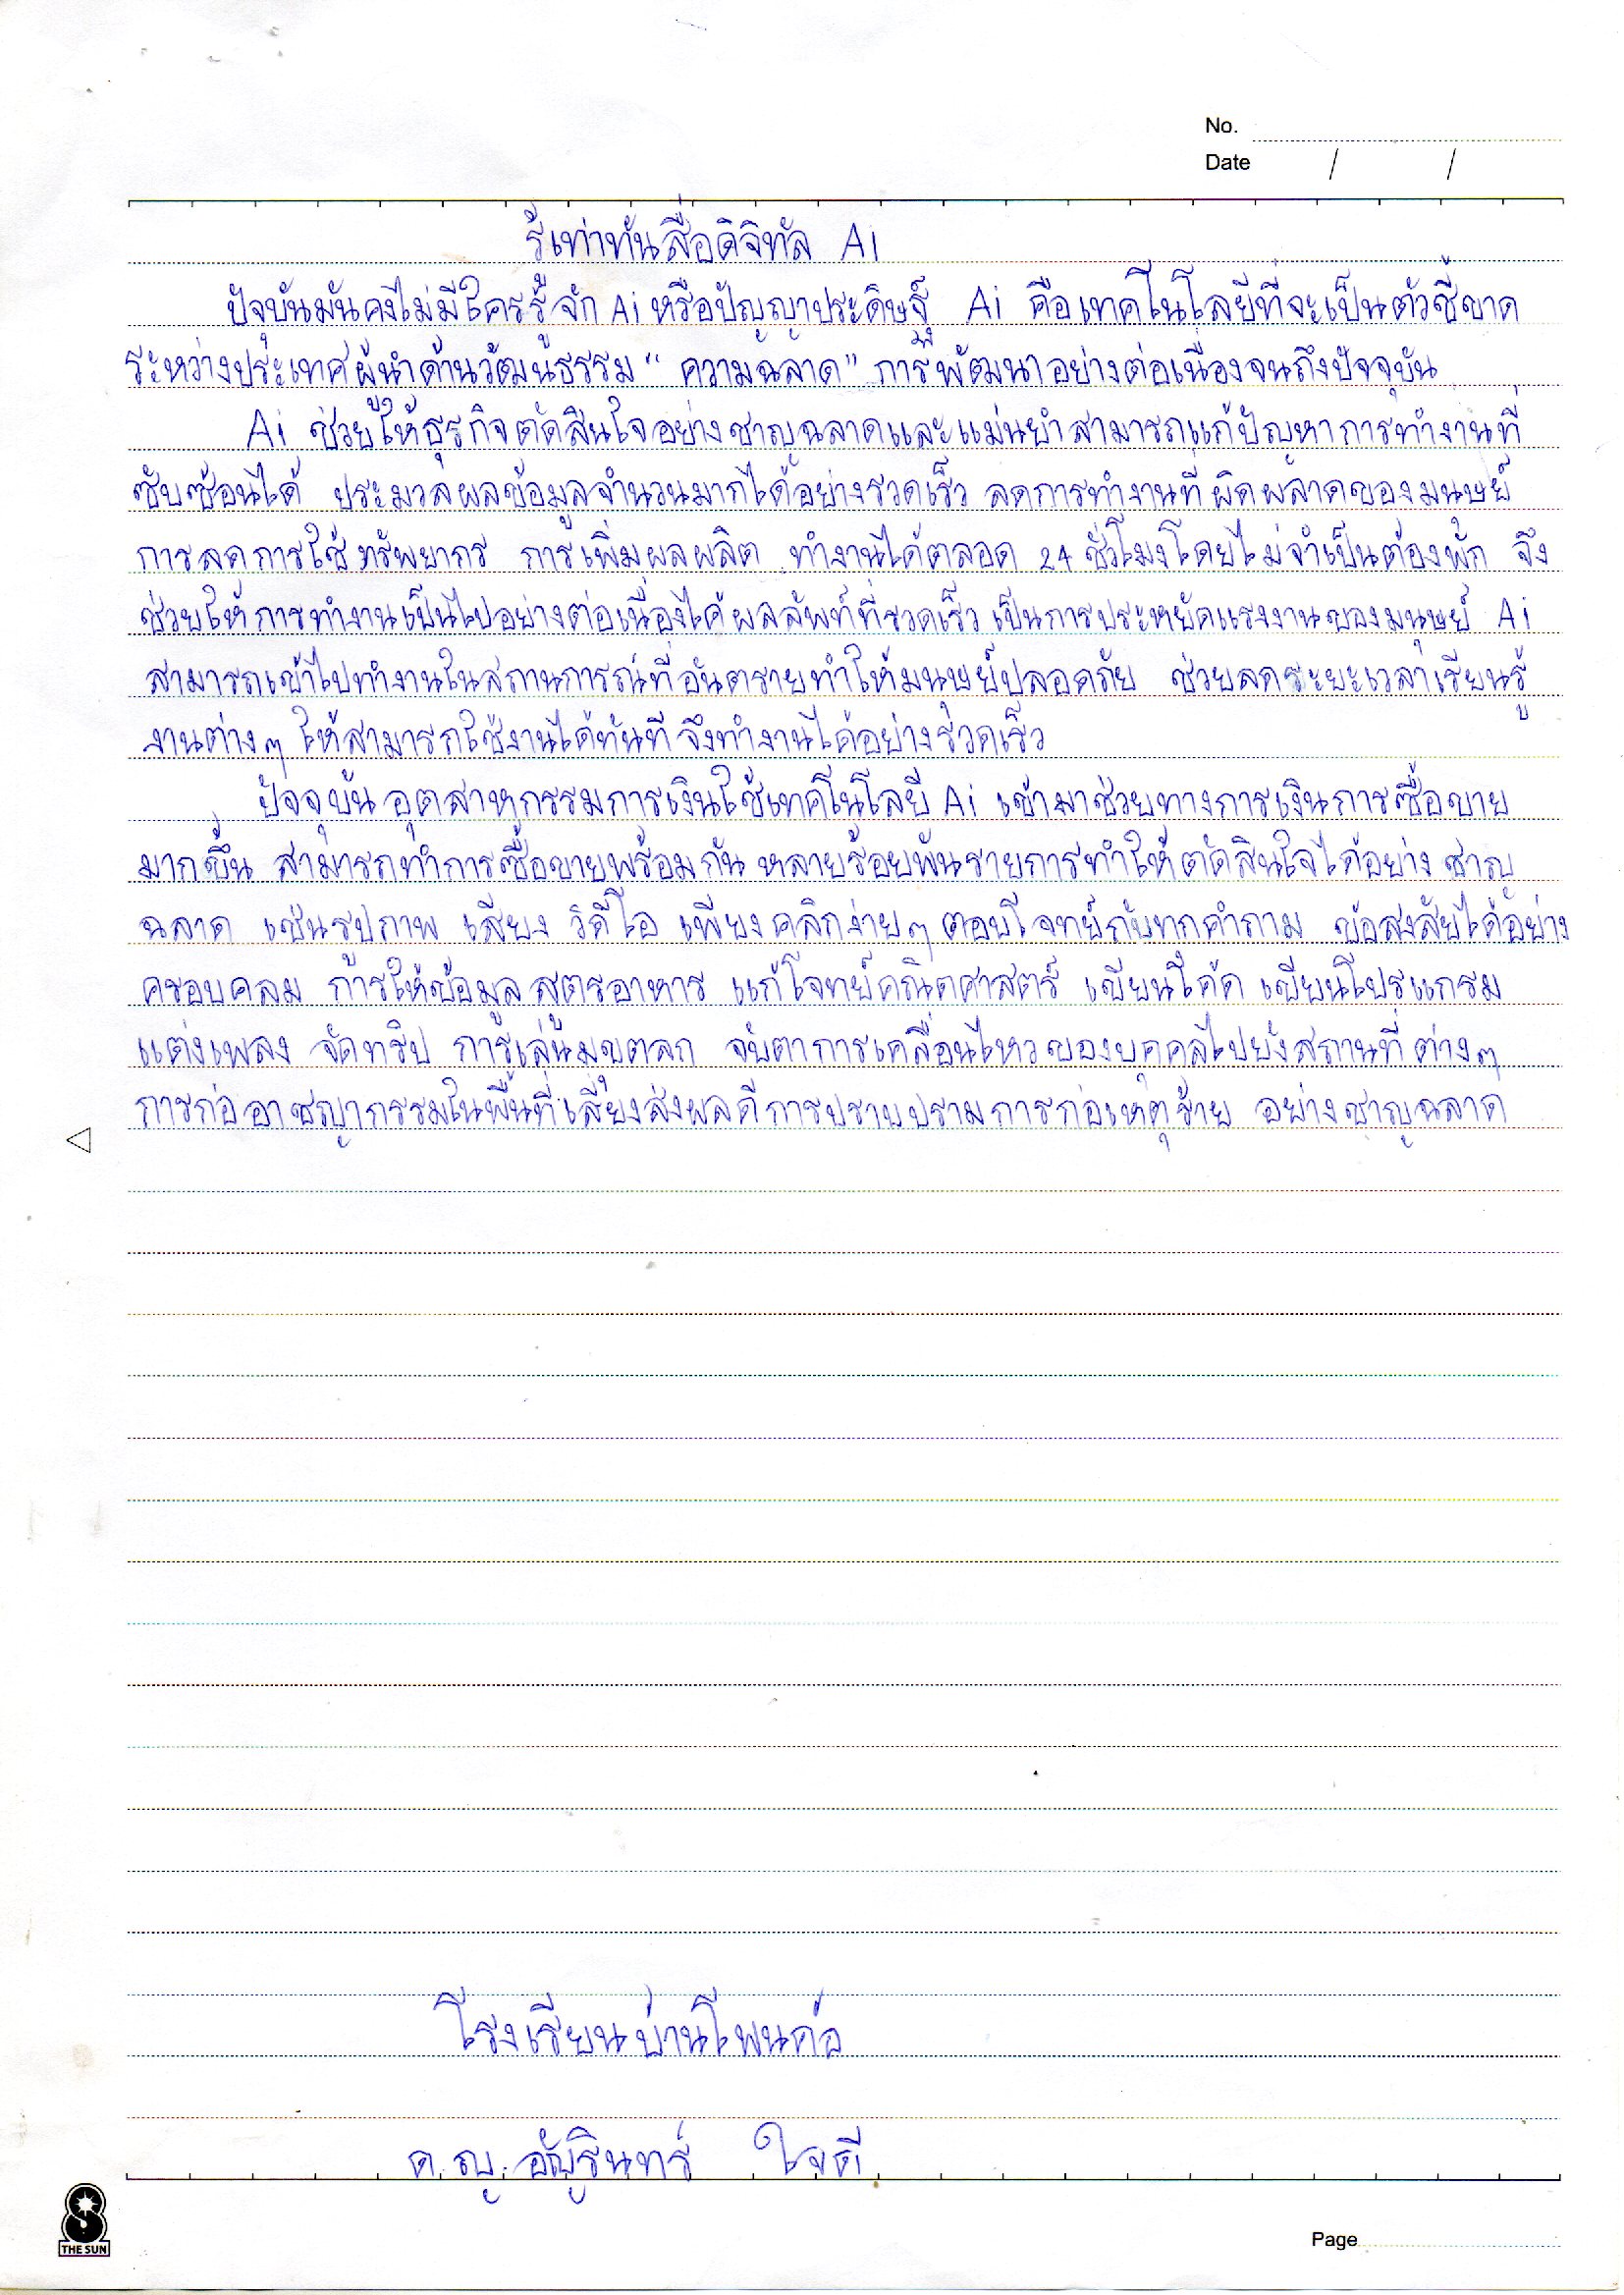 No.
Date / /
รู้เท่าทันสื่อดิจิทัล Ai
ปัจจุบันมันคงไม่มีใครรู้จัก Ai หรือปัญญาประดิษฐ์ Ai คือเทคโนโลยีที่จะเป็นตัวชี้ขาด
ระหว่างประเทศผู้นำด้านวัฒนธรรม "ความฉลาด" การพัฒนาอย่างต่อเนื่องจนถึงปัจจุบัน
Ai ช่วยให้ธุรกิจตัดสินใจอย่างชาญฉลาดและแม่นยำสามารถแก้ปัญหาการทำงานที่
ซับซ้อนได้ ประมวลผลข้อมูลจำนวนมากได้อย่างรวดเร็ว ลดการทำงานที่ผิดพลาดของมนุษย์
การลดการใช้ทรัพยากร การเพิ่มผลผลิต ทำงานได้ตลอด 24 ชั่วโมงโดยไม่จำเป็นต้องพัก จึง
ช่วยให้การทำงานเป็นไปอย่างต่อเนื่องได้ผลลัพท์ที่รวดเร็ว เป็นการประหยัดแรงงานของมนุษย์ Ai
สามารถเข้าไปทำงานในสถานการณ์ที่อันตรายทำให้มนุษย์ปลอดภัย ช่วยลดระยะเวลาเรียนรู้
งานต่างๆ ให้สามารถใช้งานได้ทันที จึงทำงานได้อย่างรวดเร็ว
ปัจจุบัน อุตสาหกรรมการเงินใช้เทคโนโลยี Ai เข้ามาช่วยทางการเงินการซื้อขาย
มากขึ้น สามารถทำการซื้อขายพร้อมกัน หลายร้อยพันรายการทำให้ตัดสินใจได้อย่าง ชาญ
ฉลาด เช่นรูปภาพ เสียง วิดีโอ เพียงคลิกง่ายๆ ตอบโจทย์กับทุกคำถาม ข้อสงสัยได้อย่าง
ครอบคลุม การให้ข้อมูล สูตรอาหาร แก้โจทย์คณิตศาสตร์ เขียนโค้ด เขียนโปรแกรม
แต่งเพลง จัดทริป การเล่นมุขตลก จับตาการเคลื่อนไหวของบุคคลไปยังสถานที่ต่างๆ
การก่ออาชญากรรมในพื้นที่เสี่ยงส่งผลดีการปราบปรามการก่อเหตุร้าย อย่างชาญฉลาด
โรงเรียนบ้านโพนค้อ
ด.ญ. อัญรินทร์ ใจดี
THE SUN
Page